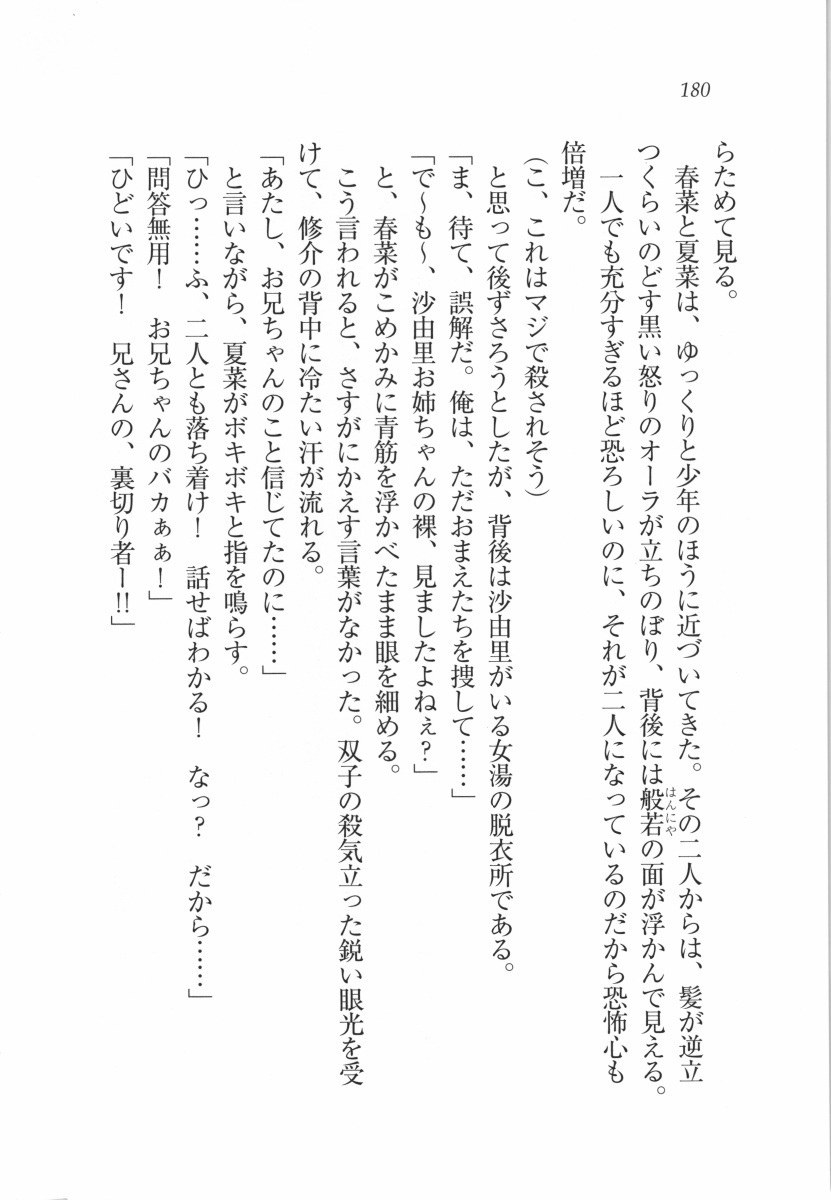 180
らためて見る。
　春菜と夏菜は、ゆっくりと少年のほうに近づいてきた。その二人からは、髪が逆立
つくらいのどす黒い怒りのオーラが立ちのぼり、背後には般若の面が浮かんで見える。
はんにや
　一人でも充分すぎるほど恐ろしいのに、それが二人になっているのだから恐怖心も
倍増だ。
（こ、これはマジで殺されそう）
　と思って後ずさろうとしたが、背後は沙由里がいる女湯の脱衣所である。
「ま、待て、誤解だ。俺は、ただおまえたちを捜して……」
「で〜も〜、沙由里お姉ちゃんの裸、見ましたよねぇ？」
　と、春菜がこめかみに青筋を浮かべたまま眼を細める。
　こう言われると、さすがにかえす言葉がなかった。双子の殺気立った鋭い眼光を受
けて、修介の背中に冷たい汗が流れる。
「あたし、お兄ちゃんのこと信じてたのに……」
　と言いながら、夏菜がボキボキと指を鳴らす。
「ひっ……ふ、二人とも落ち着け！　話せばわかる！　なっ？　だから……」
「問答無用！　お兄ちゃんのバカぁぁ！」
「ひどいです！　兄さんの、裏切り者ー!!」